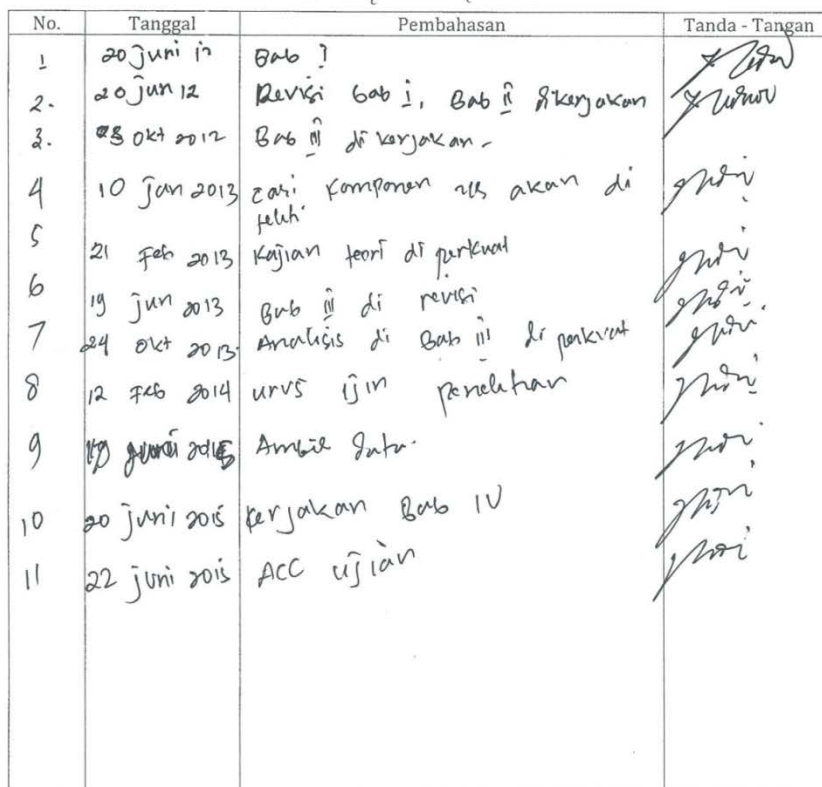 No. Tanggal Pembahasan Tanda - Tangan
1 20 Juni 12 Bab I
2. 20 Jun 12 Revisi bab I, Bab II dikerjakan
3. Okt 2012 Bab III di kerjakan.
4 10 Jan 2013 cari komponen yg akan di
teliti.
5 21 Feb 2013 Kajian teori di perkuat
6 19 Jun 2013 Bab III di revisi
7 24 Okt 2013. Analisis di Bab III di perkuat
8 12 Feb 2014 urus ijin penelitian
9 Ambil data.
10 20 Juni 2015 kerjakan Bab IV
11 22 Juni 2015 ACC ujian